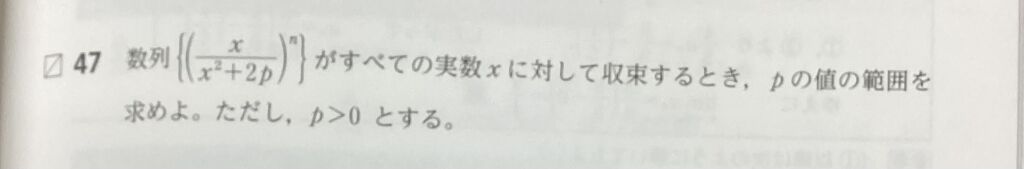 47 数列{(x/(x²+2p))ⁿ}がすべての実数xに対して収束するとき，pの値の範囲を
求めよ。ただし，p>0 とする。